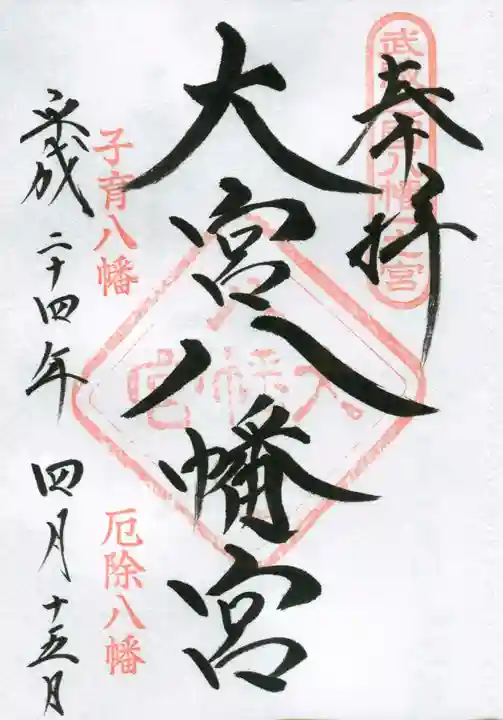 奉拝
武蔵国八幡一之宮
大宮八幡宮
子育八幡
厄除八幡
平成二十四年四月十五日